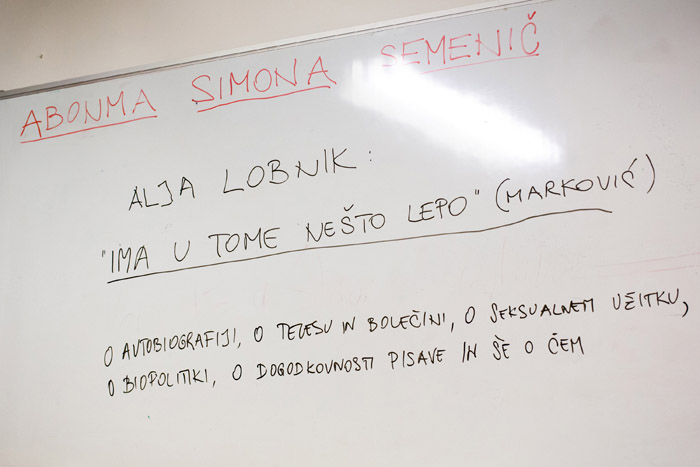 ABONMA SIMONA SEMENIČ
ALJA LOBNIK:
"IMA U TOME NEŠTO LEPO" (MARKOVIĆ)
O AVTOBIOGRAFIJI, O TELESU IN BOLEČINI, O SEKSUALNEM UŽITKU,
O BIOPOLITIKI, O DOGODKOVNOSTI PISAVE IN ŠE O ČEM